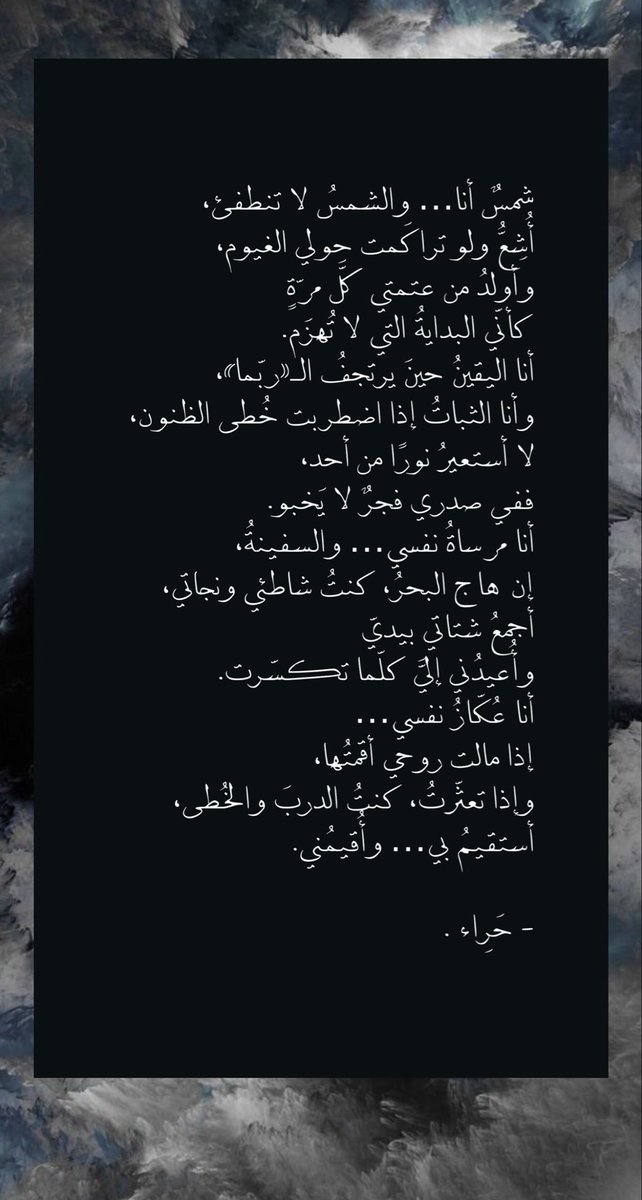 شمسٌ أنا... والشمسُ لا تنطفئ،
أُشِعُّ ولو تراكَمت حولي الغيوم،
وأولدُ من عتمتي كلَّ مرّةٍ
كأنّي البدايةُ التي لا تُهزَم.
أنا اليقينُ حينَ يرتجفُ الـ«ربّما»،
وأنا الثباتُ إذا اضطربت خُطى الظنون،
لا أستعيرُ نورًا من أحد،
ففي صدري فجرٌ لا يَخبو.
أنا مرساةُ نفسي... والسفينةُ،
إن هاج البحرُ، كنتُ شاطئي ونجاتي،
أجمعُ شتاتي بيديّ
وأُعيدُني إليَّ كلّما تكسّرت.
أنا عُكّازُ نفسي...
إذا مالت روحي أقمتُها،
وإذا تعثّرتُ، كنتُ الدربَ والخُطى،
أستقيمُ بي... وأُقيمُني.
- حَرِاء .